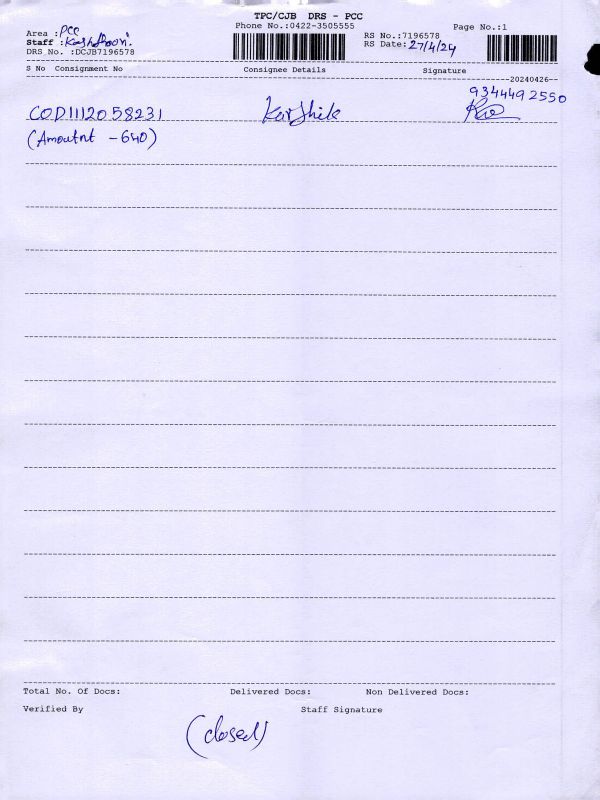 TPC/CJB DRS - PCC
Phone No.:0422-3505555
Page No.:1
Area :PCC
RS No.:7196578
Staff :
RS Date:27/4/24
DRS No. :DCJB7196578
S No Consignment No Consignee Details Signature
20240426
9344492550
COD1112058231 Karthik
(Amoutnt - 640)
Total No. Of Docs: Delivered Docs: Non Delivered Docs:
Verified By Staff Signature
(closed)